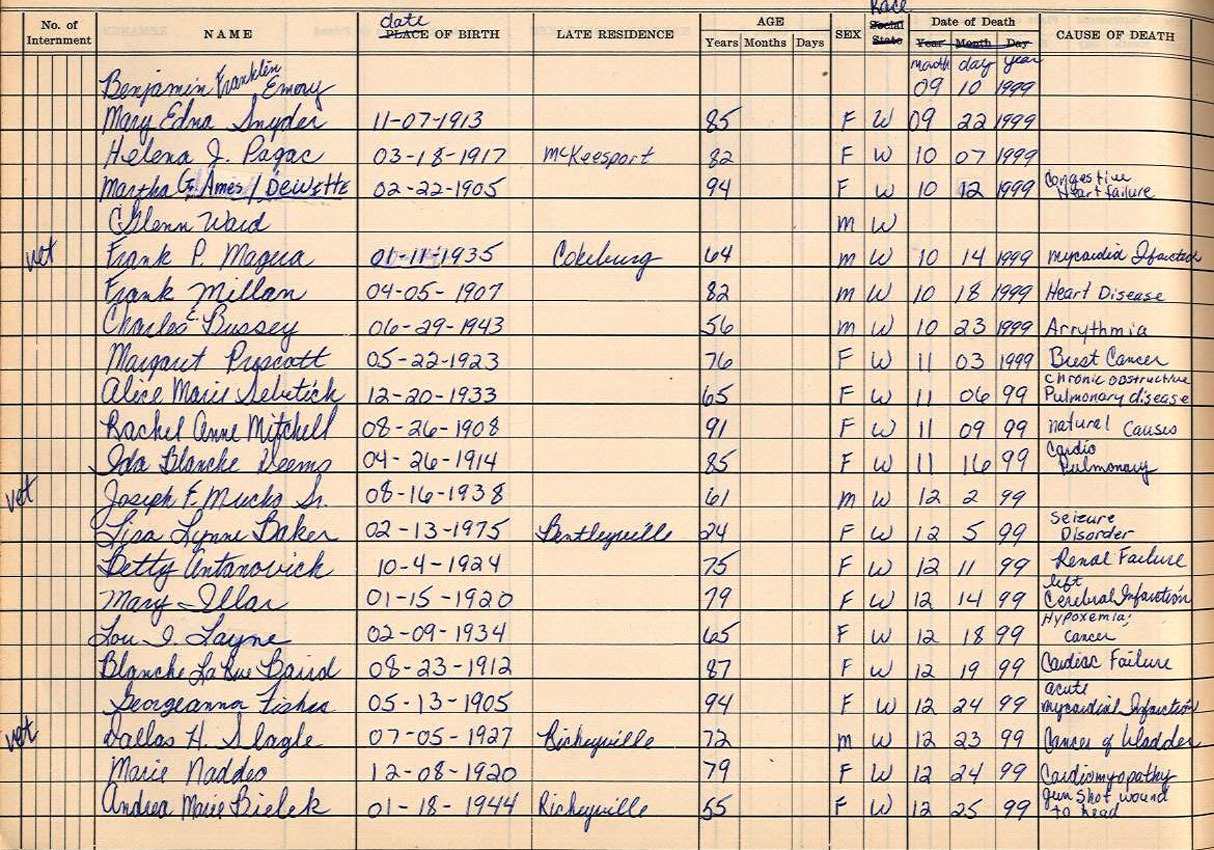 No. of Internment NAME date PLACE OF BIRTH LATE RESIDENCE AGE Years Months Days SEX Race Social State Date of Death Year Month Day CAUSE OF DEATH
month day year
Benjamin Franklin Emory 09 10 1999
Mary Edna Snyder 11-07-1913 85 F W 09 22 1999
Helena J. Pagac 03-18-1917 McKeesport 82 F W 10 07 1999
Martha G. Ames / DeWette 02-22-1905 94 F W 10 12 1999 Congestive Heart failure
Glenn Ward m W
vet Frank P. Magera 01-11-1935 Cokeburg 64 m W 10 14 1999 mycardid Infarction
Frank Millan 04-05-1907 82 m W 10 18 1999 Heart Disease
Charles E. Bussey 06-29-1943 56 m W 10 23 1999 Arrythmia
Margaret Prescott 05-22-1923 76 F W 11 03 1999 Brest Cancer
Alice Marie Sebetick 12-20-1933 65 F W 11 06 99 Chronic obstructive Pulmonary disease
Rachel Anne Mitchell 08-26-1908 91 F W 11 09 99 natural Causes
Ida Blanche Deems 04-26-1914 85 F W 11 16 99 Cardio Pulmonary
vet Joseph F. Mucho Sr. 08-16-1938 61 m W 12 2 99
Lisa Lynne Baker 02-13-1975 Bentleyville 24 F W 12 5 99 Seizure Disorder
Betty Antanovick 10-4-1924 75 F W 12 11 99 Renal Failure
Mary Illar 01-15-1920 79 F W 12 14 99 left Cerebral Infarction
Lou I. Layne 02-09-1934 65 F W 12 18 99 Hypoxemia; Cancer
Blanche LaRue Baird 08-23-1912 87 F W 12 19 99 Cardiac Failure
Georgeanna Fisher 05-13-1905 94 F W 12 24 99 acute mycardial Infarction
vet Dallas H. Slagle 07-05-1927 Richeyville 72 m W 12 23 99 Cancer of bladder
Marie Naddeo 12-08-1920 79 F W 12 24 99 Cardiomyopathy
Andrea Marie Bielek 01-18-1944 Richeyville 55 F W 12 25 99 gun shot wound to head